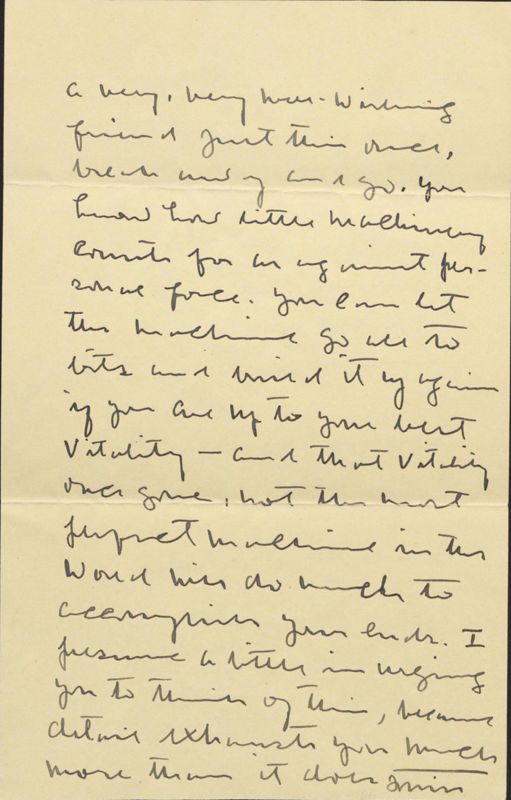 a very, very well-wishing
friend just this once,
break away and go. You
know how little machinery
counts for as against per-
sonal force. You can let
the machine go all to
bits and build it up again
if you are up to your best
vitality — and that vitality
once gone, not the most
perfect machine in the
world will do much to
accomplish your ends. I
presume a little in urging
you to think of this, because
detail exhausts you much
more than it does